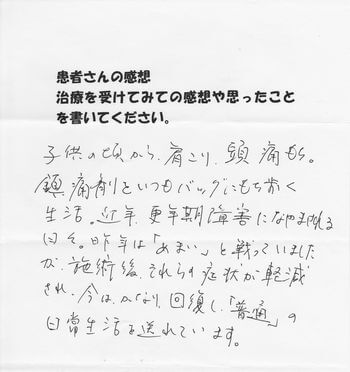 患者さんの感想
治療を受けてみての感想や思ったこと
を書いてください。
子供の頃から、肩こり、頭痛もち。
鎮痛剤をいつもバッグにもち歩く
生活。近年、更年期障害になやまされる
日々。昨年は「めまい」と戦っていました
が、施術後、それらの症状が軽減
され、今は、かなり、回復し、「普通」の
日常生活を送れています。